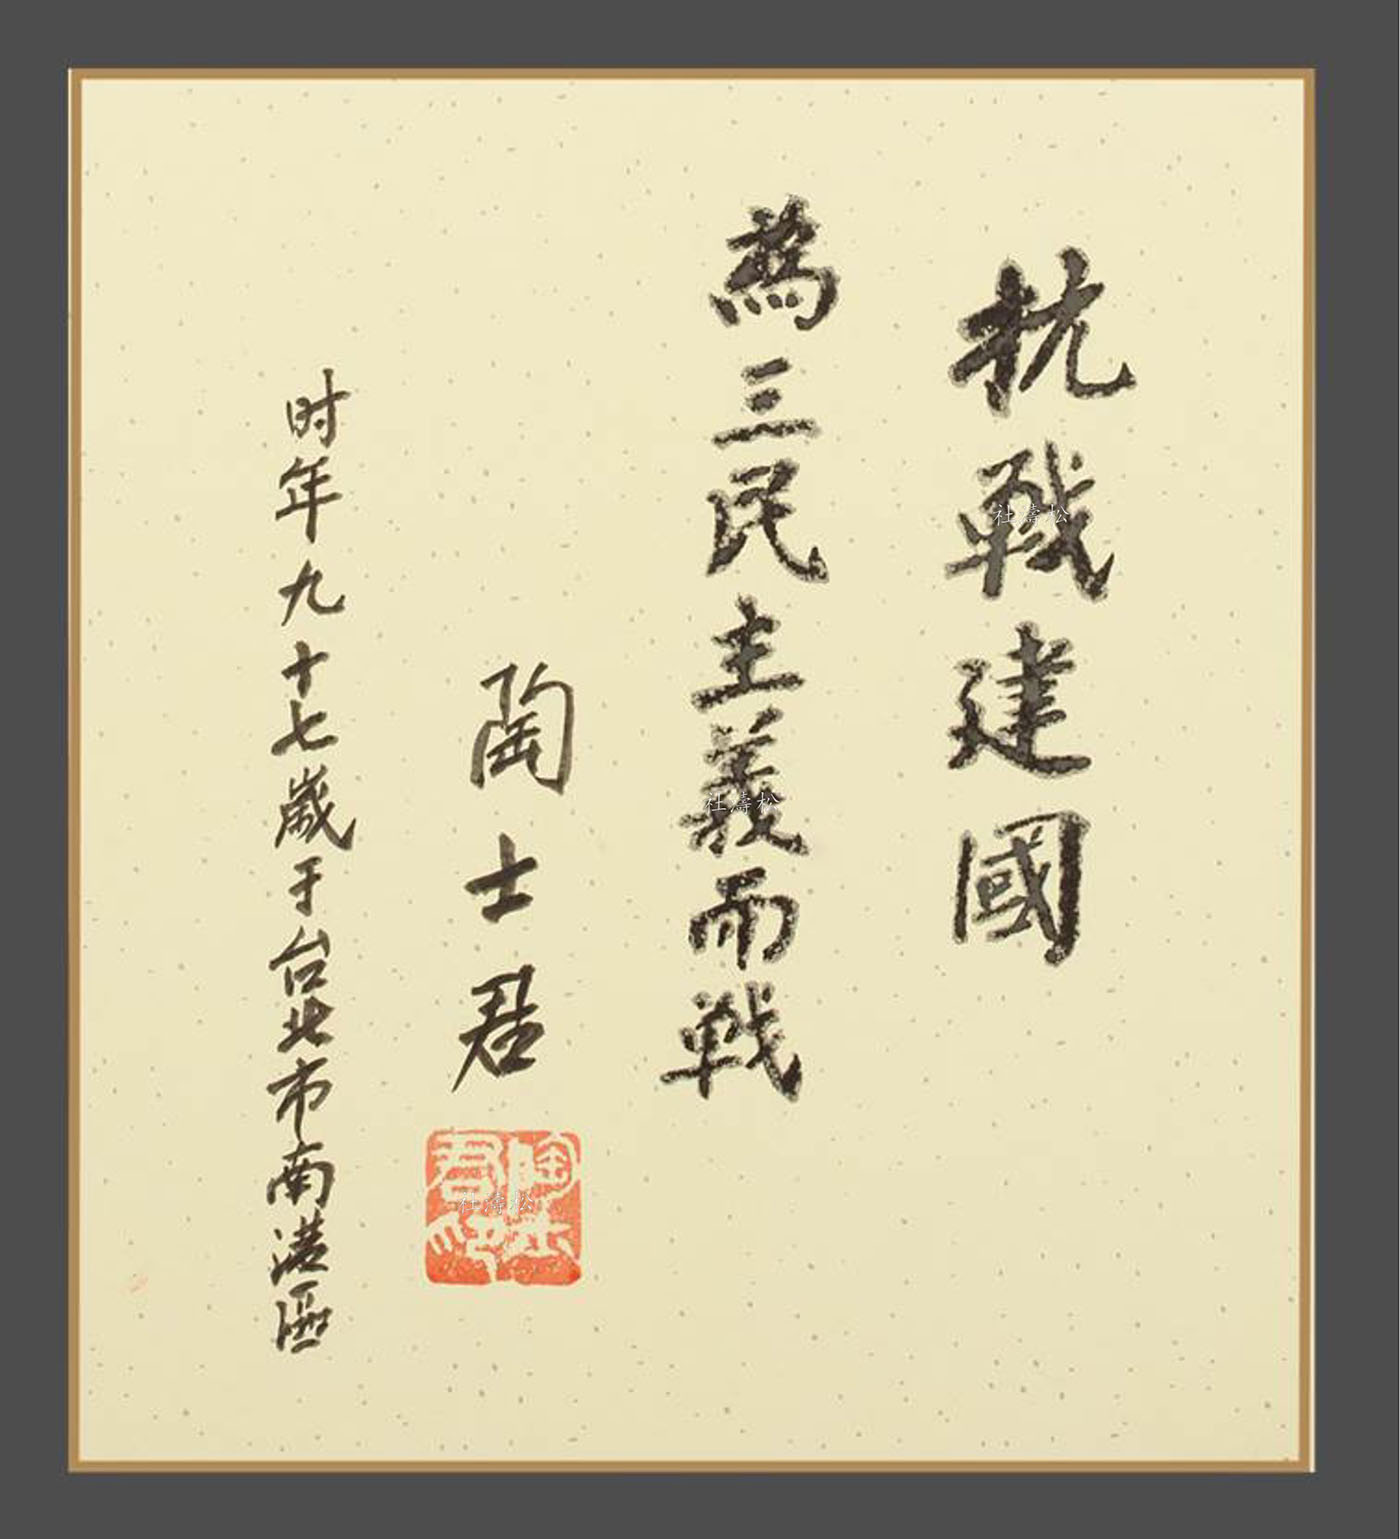 抗戰建國
為三民主義而戰
陶士君
时年九十七歲于台北市南港區
陶士君印
社濤松
社濤松
社濤松